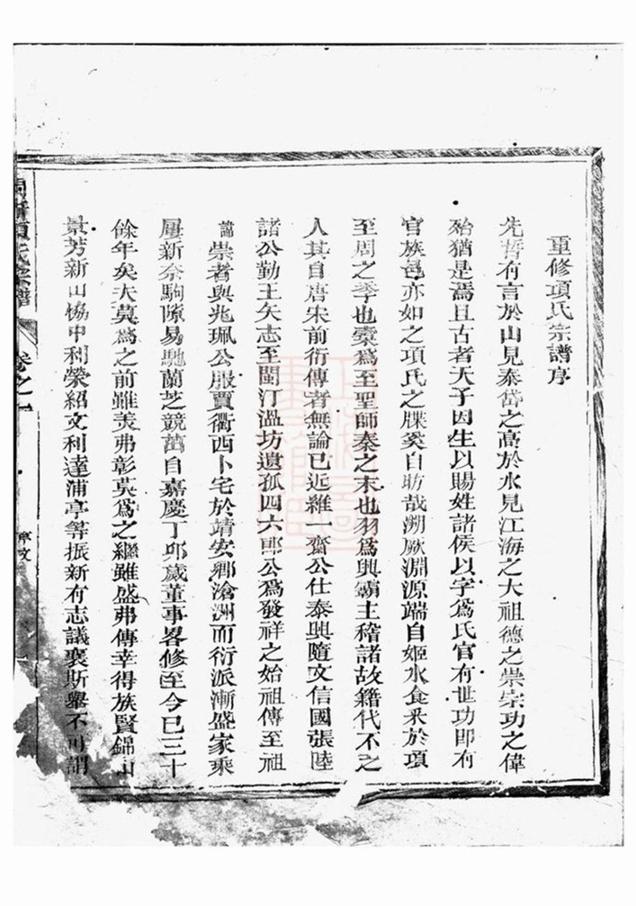 重修項氏宗譜序
先哲有言於山見泰岱之高於水見江海之大祖德之崇宗功之偉
殆猶是焉且古者天子因生以賜姓諸侯以字爲氏官有世功卽有
官族邑亦如之項氏之牒奚自昉哉溯厥淵源端自姬水食釆於項
至周之季也橐爲至聖師秦之末也羽爲興霸主稽諸故籍代不乏
人其自唐宋前衍傳者無論已近維一齋公仕泰興隨文信國張陸
諸公勤王矢志至閩汀溫坊遺孤四六郎公爲發祥之始祖傳至祖
諱崇者與兆珮公服賈衢西卜宅於靖安鄉滄洲而衍派漸盛家乘
屢新奈駒隙易馳蘭芝競茁自嘉慶丁卯歲董事畧修至今已三十
餘年矣夫莫爲之前雖美弗彰莫爲之繼雖盛弗傳幸得族賢錦山
景芳新山協中利榮紹文利達浦亭等振新有志議襄斯舉不可謂
項氏宗譜
卷之一